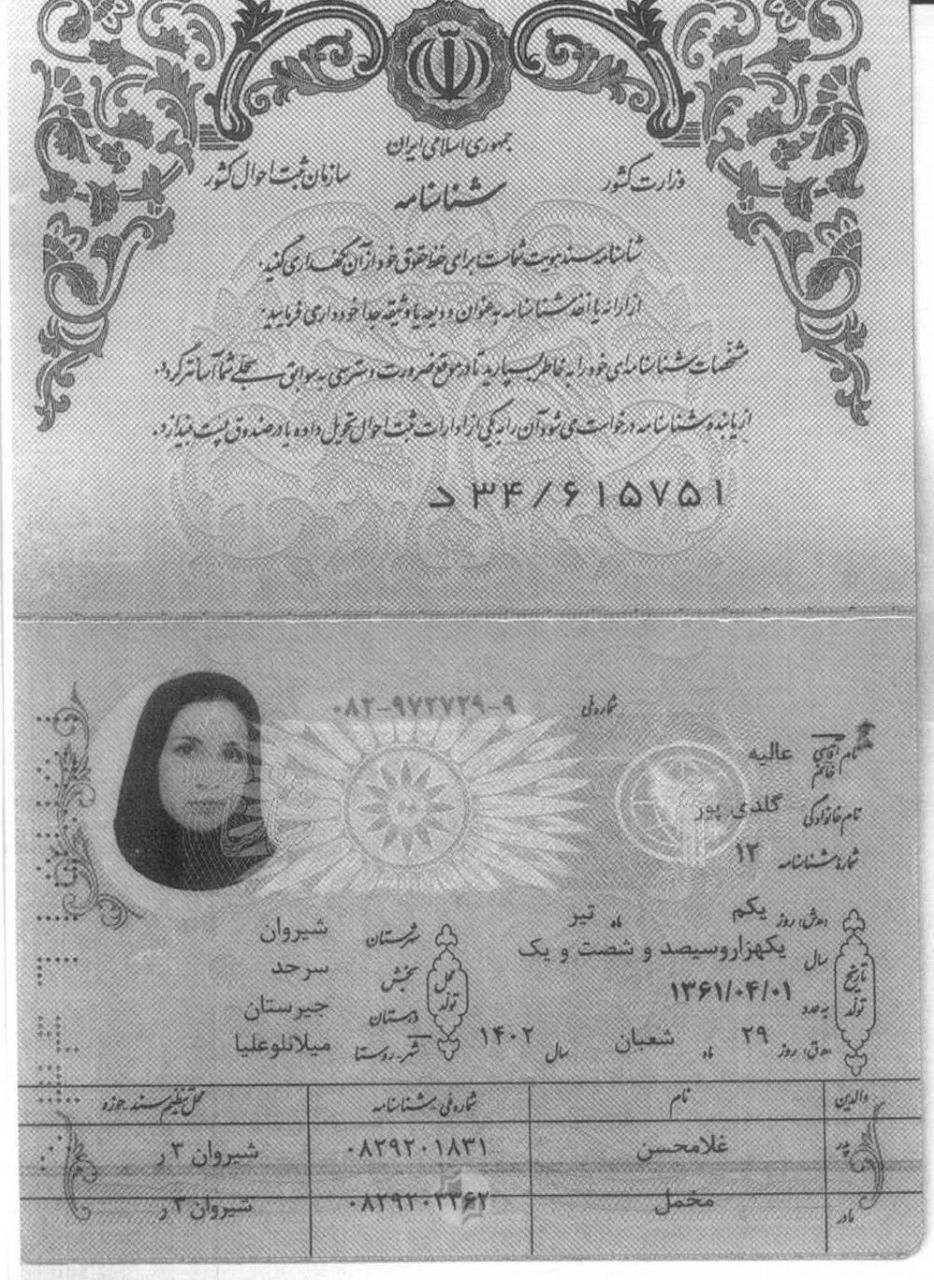 جمهوری اسلامی ایران
وزارت کشور
سازمان ثبت احوال کشور
شناسنامه
شناسنامه سند هویت شماست برای حفظ حقوق خود از آن نگهداری کنید.
از ارائه یا اخذ شناسنامه به عنوان ودیعه یا وثیقه جداً خودداری فرمایید.
مشخصات شناسنامه‌ای خود را به خاطر بسپارید تا در موقع ضرورت دسترسی به سوابق سجلی شما آسانتر گردد.
از یابنده شناسنامه درخواست می شود آن را به یکی از ادارات ثبت احوال تحویل داده یا در صندوق پست بیندازد.
د ۳۴/۶۱۵۷۵۱
شماره ملی ۰۸۲-۹۷۲۷۲۹-۹
نام آقای خانم عالیه
نام خانوادگی گلدی پور
شماره شناسنامه ۱۲
تاریخ تولد
ه‍.ش: روز یکم ماه تیر
سال یکهزاروسیصد و شصت و یک
به عدد ۱۳۶۱/۰۴/۰۱
ه‍.ق: روز ۲۹ ماه شعبان سال ۱۴۰۲
محل تولد
شهرستان شیروان
بخش سرحد
دهستان جیرستان
شهر-روستا میلانلوعلیا
والدین نام شماره ملی-شناسنامه محل تنظیم سند-حوزه
پدر غلامحسن ۰۸۲۹۲۰۱۸۳۱ شیروان ۳ ر
مادر مخمل شیروان ۳ ر